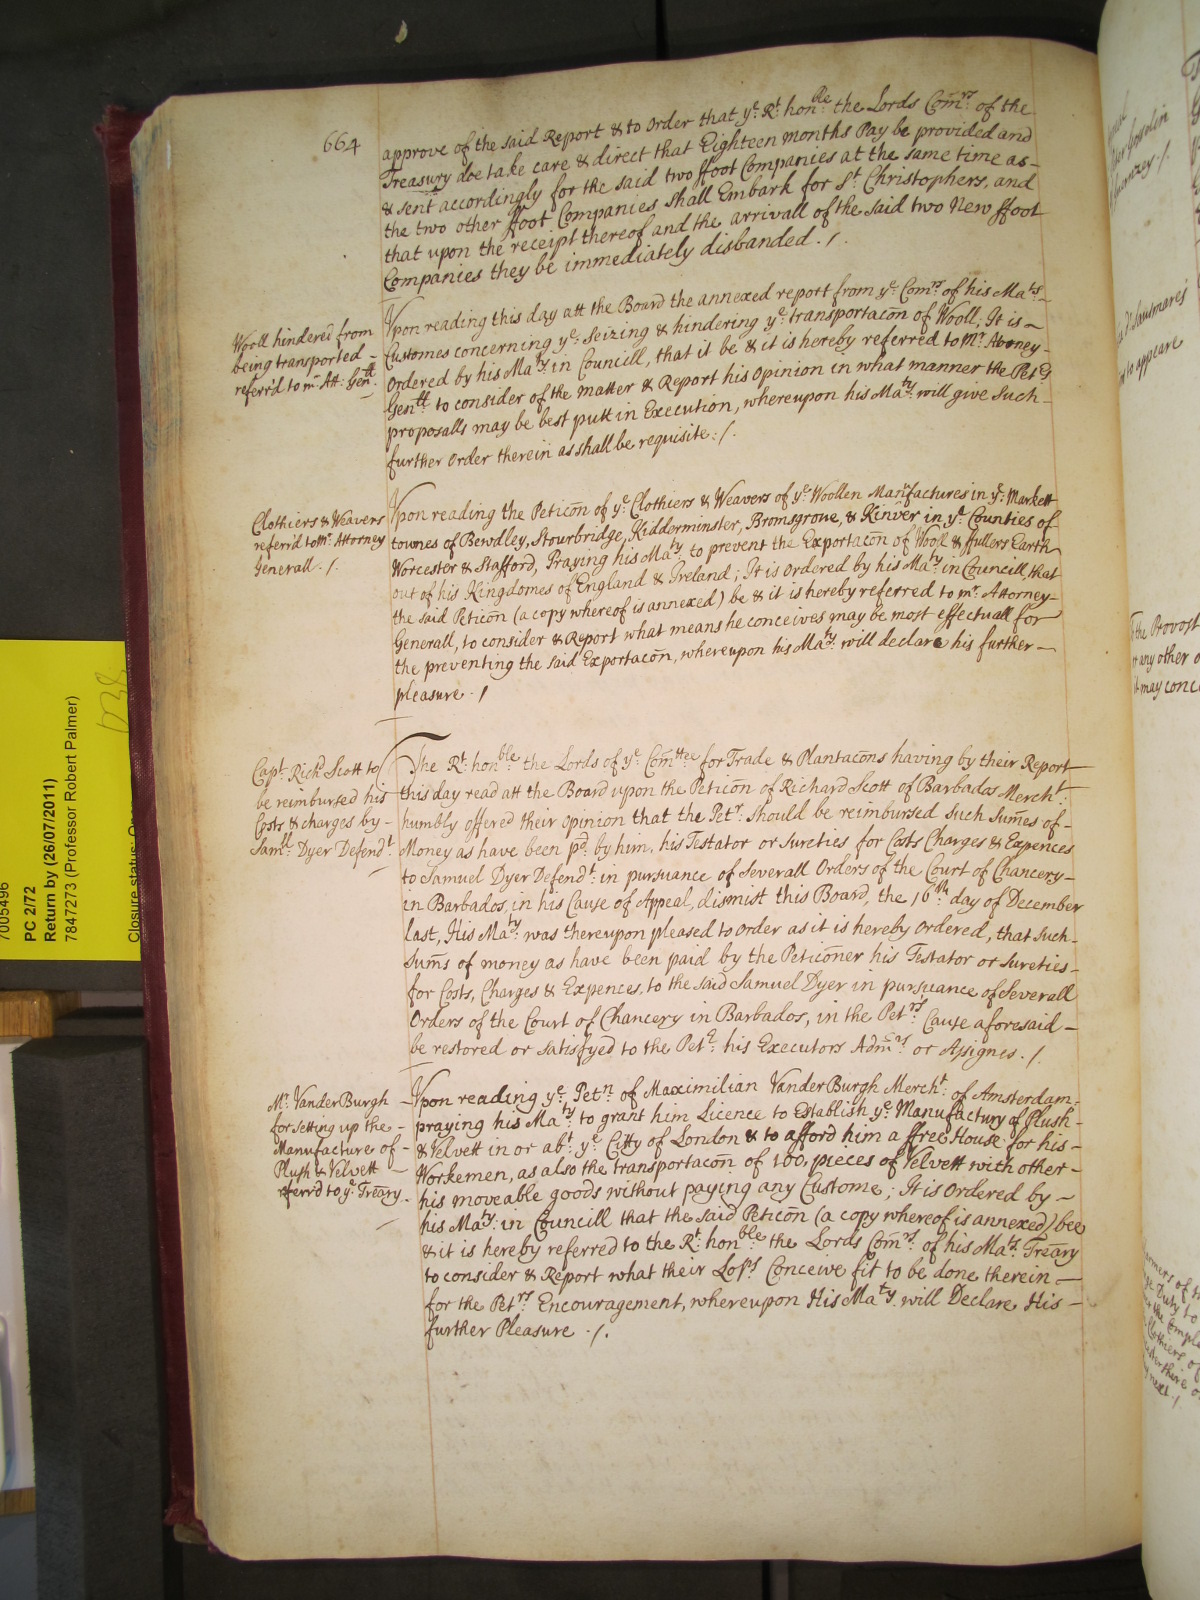 664
approve of the said Report & to Order that yᵉ Rᵗ honᵇˡᵉ the Lords Com̄ʳˢ of the
Treasury doe take care & direct that Eighteen months Pay be provided and
& sent accordingly for the said two ffoot Companies at the same time as-
the two other ffoot Companies shall Embark for Sᵗ Christophers, and
that upon the receipt thereof and the arrivall of the said two New ffoot
Companies they be immediately disbanded ./.
Wooll hindered from
being transported -
referr'd to mʳ Att: Genˡˡ.
Vpon reading this day att the Board the annexed report from yᵉ Comʳˢ of his Maᵗˢ
Customes concerning yᵉ Seizing & hindering yᵉ transportac̄on of Wooll, It is -
Ordered by his Maᵗʸ in Councill, that it be & it is hereby referred to Mʳ Atorney-
Genˡˡ to consider of the matter & Report his Opinion in what manner the Petʳˢ
proposalls may be best putt in Execution, whereupon his Maᵗʸ will give Such-
further Order therein as shall be requisite :/.
Clothiers & Weavers
referr'd to Mʳ Attorney
Generall ./.
Vpon reading the Petic̄on of yᵉ Clothiers & Weavers of yᵉ Woollen Manufactures in yᵉ Markett
townes of Bewdley, Stourbridge, Kidderminster, Bromsgrove, & Kinver in yᵉ Counties of
Worcester & Stafford, Praying his Maᵗʸ to prevent the Exportac̄on of Wooll & ffullers Earth
out of his Kingdomes of England & Ireland; It is Ordered by his Maᵗʸ in Councill, that
the said Petic̄on (a copy whereof is annexed) be & it is hereby referred to mʳ Attorney-
Generall, to consider & Report what means he conceives may be most effectuall for
the preventing the said Exportac̄on, whereupon his Maᵗʸ will declare his further -
pleasure ./
Capᵗ Richᵈ Scott to
be reimbursed his
Costs & charges by -
Samˡˡ Dyer Defendᵗ.
The Rᵗ honᵇˡᵉ the Lords of yᵉ Com̄ᵗᵗᵉᵉ for Trade & Plantac̄ons having by their Report
this day read att the Board upon the Petic̄on of Richard Scott of Barbados Merchᵗ
humbly offered their Opinion that the Petʳ Should be reimbursed Such Sum̄es of-
Money as have been pᵈ by him, his Testator or Sureties for Costs Charges & Expences
to Samuel Dyer Defendᵗ in pursuance of Severall Orders of the Court of Chancery-
in Barbados, in his Cause of Appeal, dismist this Board, the 16ᵗʰ day of December
last, His Maᵗʸ was thereupon pleased to Order as it is hereby Ordered, that Such-
Sum̄s of money as have been paid by the Petic̄oner his Testator or Sureties -
for Costs, Charges & Expences, to the said Samuel Dyer in pursuance of Severall
Orders of the Court of Chancery in Barbados, in the Petʳˢ Cause aforesaid -
be restored or Satisfyed to the Petʳ his Executors Adm̄ʳˢ or Assignes ./.
Mʳ VanderBurgh -
for setting up the -
Manufacture of -
Plush & Velvett -
referr'd to yᵉ Trēary.
Vpon reading yᵉ Petⁿ of Maximilian VanderBurgh Merchᵗ of Amsterdam.
praying his Maᵗʸ to grant him Licence to Establish yᵉ Manufactury of Plush-
& Velvett in or abᵗ yᵉ Citty of London & to afford him a ffree House for his -
Workemen, as also the transportac̄on of 100. pieces of Velvett with other -
his moveable goods without paying any Custome; It is Ordered by -
his Maᵗʸ in Councill that the said Petic̄on (a copy whereof is annexed) bee
& it is hereby referred to the Rᵗ honᵇˡᵉ the Lords Com̄ʳˢ of his Maᵗˢ Trēary
to consider & Report what their Loᵖˢ Conceive fit to be done therein -
for the Petʳˢ Encouragement, whereupon His Maᵗʸ will Declare His -
further Pleasure ./.
7005496
PC 2/72
Return by (26/07/2011)
7847273 (Professor Robert Palmer)
Closure status:
to appeare
the Provost
any other
it may conc